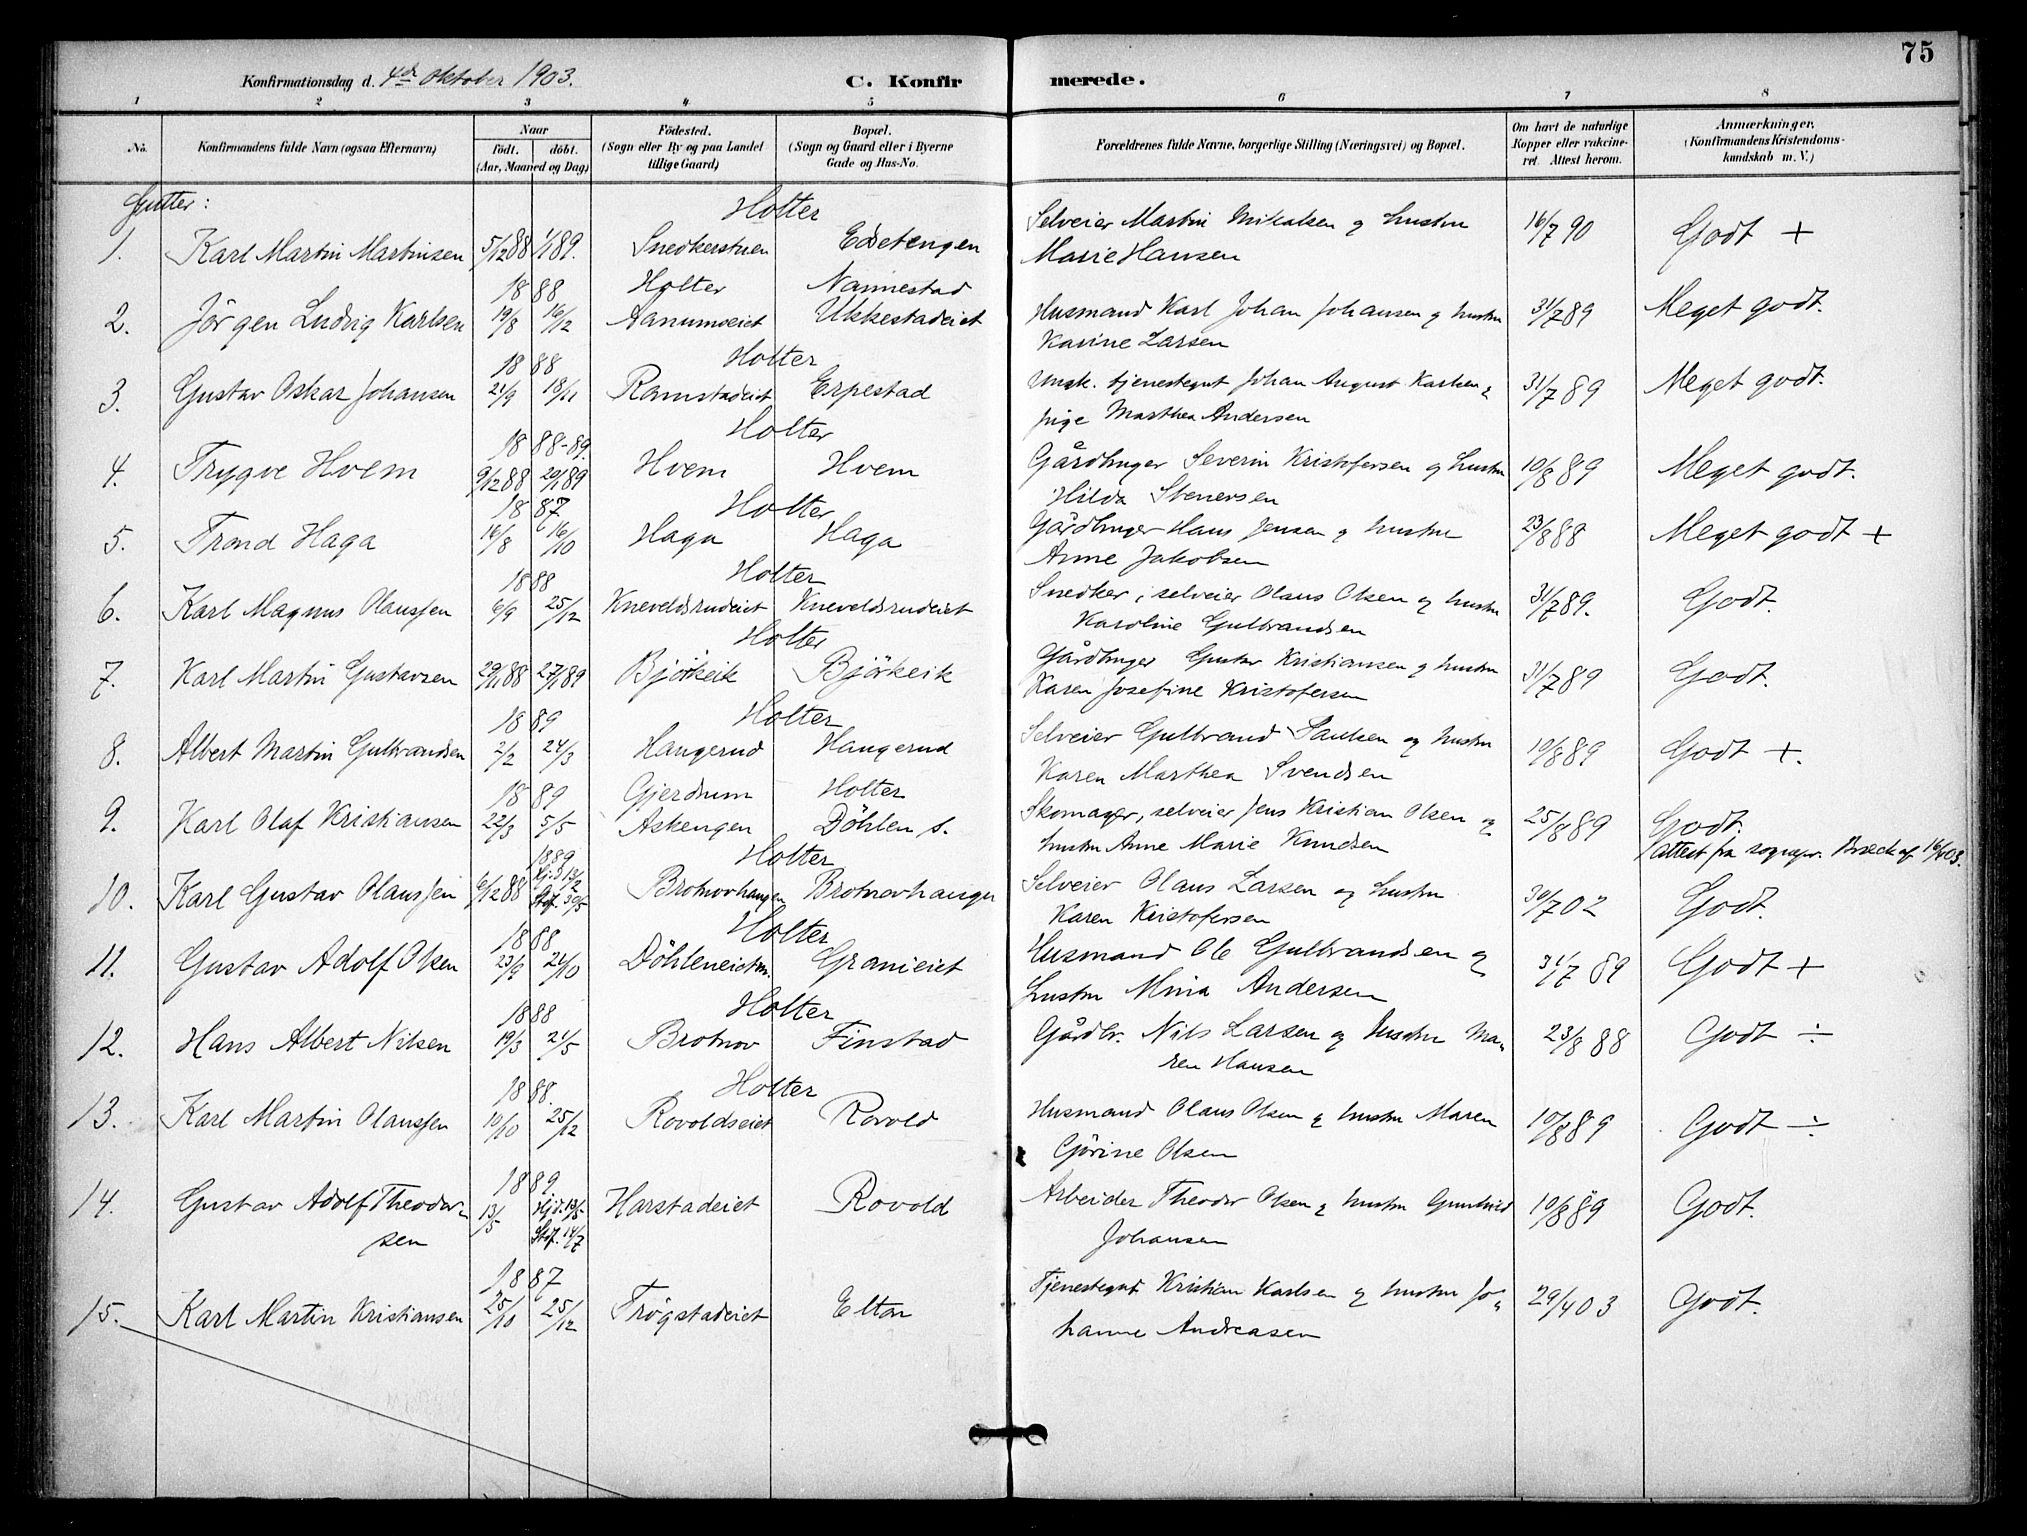 75
Konfirmationsdag d. 4de Oktober 1903. C. Konfirmerede.
1 2 3 4 5 6 7 8
No. Konfirmandens fulde Navn (ogsaa Efternavn) Naar Födt. döbt. (Aar, Maaned og Dag) Födested. (Sogn eller By og paa Landet tillige Gaard) Bopæl. (Sogn og Gaard eller i Byerne Gade og Hus-No. Forældrenes fulde Navne, borgerlige Stilling (Næringsvei) og Bopæl. Om havt de naturlige Kopper eller vakcineret. Attest herom. Anmærkninger, (Konfirmandens Kristendomskundskab m. V.)
Gutter:
Holter
1. Karl Martin Martinsen 5/12 88 1/1 89. Snedkerstuen Edsetengen Selveier Martin Mikalsen og hustru Marie Hansen 16/7 90 Godt +
1888 Holter Nannestad
2. Jörgen Ludvig Karlsen 19/8 16/12 Aanumseiet Ukkestadeiet Husmand Karl Johan Johansen og hustru Karine Larsen 31/7 89 Meget godt.
1888 Holter
3. Gustav Oskar Johansen 21/9 18/11 Ramstadeiet Erpestad Ungk. tjenestegut Johan August Karlsen og pige Marthea Andersen 31/7 89 Meget godt.
1888-89. Holter
4. Trygve Hvem 9/12 88 20/1 89 Hvem Hvem Gårdbruger Severin Kristofersen og hustru Hilda Stenersen 10/8 89 Meget godt.
1887 Holter
5. Trond Haga 16/8 16/10 Haga Haga Gårdbruger Hans Jensen og hustru Anne Jakobsen 23/8 88 Meget godt +
1888 Holter
6. Karl Magnus Olaussen 6/9 25/12 Kneveldsrudeiet Kneveldsrudeiet Snedker, selveier Olaus Olsen og hustru Karoline Gulbrandsen 31/7 89. Godt.
Holter
7. Karl Martin Gustavsen 29/11 88 27/1 89 Björkeik Björkeik Gårdbruger Gustav Kristiansen og hustru Karen Josefine Kristofersen 31/7 89 Godt.
1889 Holter
8. Albert Martin Gulbrandsen 2/2 24/3 Haugerud Haugerud Selveier Gulbrand Paulsen og hustru Karen Marthea Svendsen 10/8 89 Godt +.
1889 Gjerdrum Holter
9. Karl Olaf Kristiansen 22/3 5/5 Askengen Döhlen s. Skomager, selveier Jens Kristian Olsen og hustru Anne Marie Knudsen 25/8 89 Godt. Attest fra sognepr.
1889 Holter
10. Karl Gustav Olaussen 6/12 88 Hj.d. 13/2 Stf. 30/5 Brotnovhaugen Brotnovhaugen Selveier Olaus Larsen og hustru Karen Kristofersen 30/7 02 Godt.
1888 Holter
11. Gustav Adolf Olsen 23/9 21/10 Döhleneiet Granieiet Husmand Ole Gulbrandsen og hustru Mina Andersen 31/7 89 Godt +
1888 Holter
12. Hans Albert Nilsen 19/3 21/5 Brotnov Finstad Gårdbr. Nils Larsen og hustru Maren Hansen 23/8 88 Godt ÷
1888. Holter
13. Karl Martin Olaussen 10/10 25/12 Rovoldseiet Rovold Husmand Olaus Olsen og hustru Maren Görine Olsen 10/8 89 Godt ÷
1889
14. Gustav Adolf Theodorsen 13/5 Hj.d. 19/5 Stf. 14/7 Harstadeiet Rovold Arbeider Theodor Olsen og hustru Gunhild Johansen 10/8 89 Godt.
1887
15. Karl Martin Kristiansen 25/10 25/12 Trögstadeiet Elton Tjenestegut Kristian Karlsen og hustru Johanne Andreasen 29/4 03 Godt.